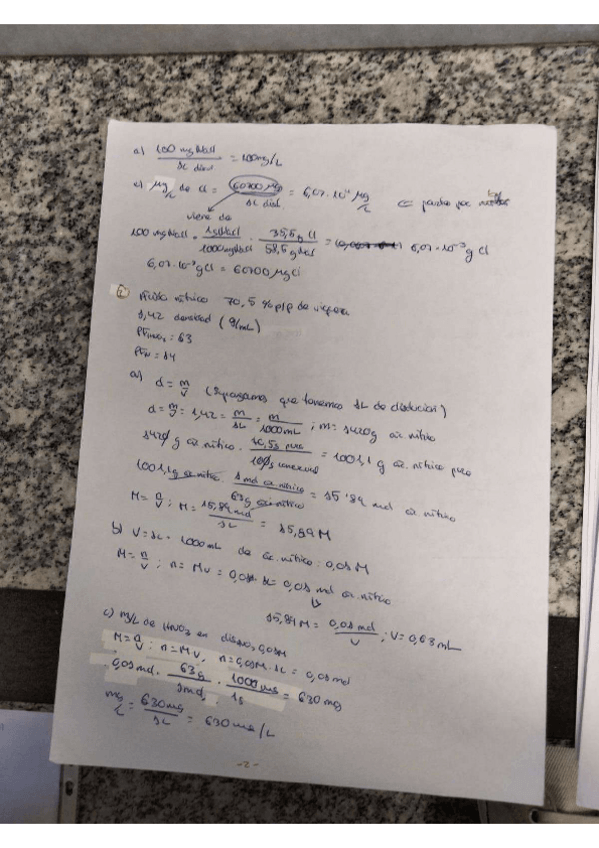 a) 100 mg NaCl / 1L disol = 100mg/L
c) µg/L de Cl = 60700 µg Cl / 1L disol. = 6,07·10⁴ µg/L ⇐ partes por
viene de
100 mg NaCl · 1g NaCl / 1000 mg NaCl · 35,5 g Cl / 58,5 g NaCl = 6,07·10⁻² g Cl
6,07·10⁻² g Cl = 60700 µg Cl
Ácido nítrico 70,5 % p/p de riqueza
1,42 densidad (g/mL)
PM HNO₃ = 63
PM N = 14
a) d = m/V (Supongamos que tenemos 1L de disolución)
d = m/V = 1,42 = m/1L = m/1000mL ; m = 1420g ác nítrico
1420 g ác. nítrico · 70,5g puro / 100g comercial = 1001,1 g ác. nítrico puro
1001,1g ác. nítrico · 1 mol ác nítrico / 63g ác nítrico = 15'89 mol ác nítrico
M = n/V ; M = 15,89 mol / 1L = 15,89 M
b) V = 1L · 1000 mL de ác. nítrico : 0,01 M
M = n/V ; n = MV = 0,01 · 1L = 0,01 mol ác nítrico
15,89 M = 0,01 mol / V ; V = 0,63 mL
c) mg/L de HNO₃ en 0,01M
M = n/V ; n = MV, n = 0,01M · 1L = 0,01 mol
0,01 mol · 63g / 1mol · 1000 mg / 1g = 630 mg
mg/L = 630 mg / 1L = 630 mg/L
-2-